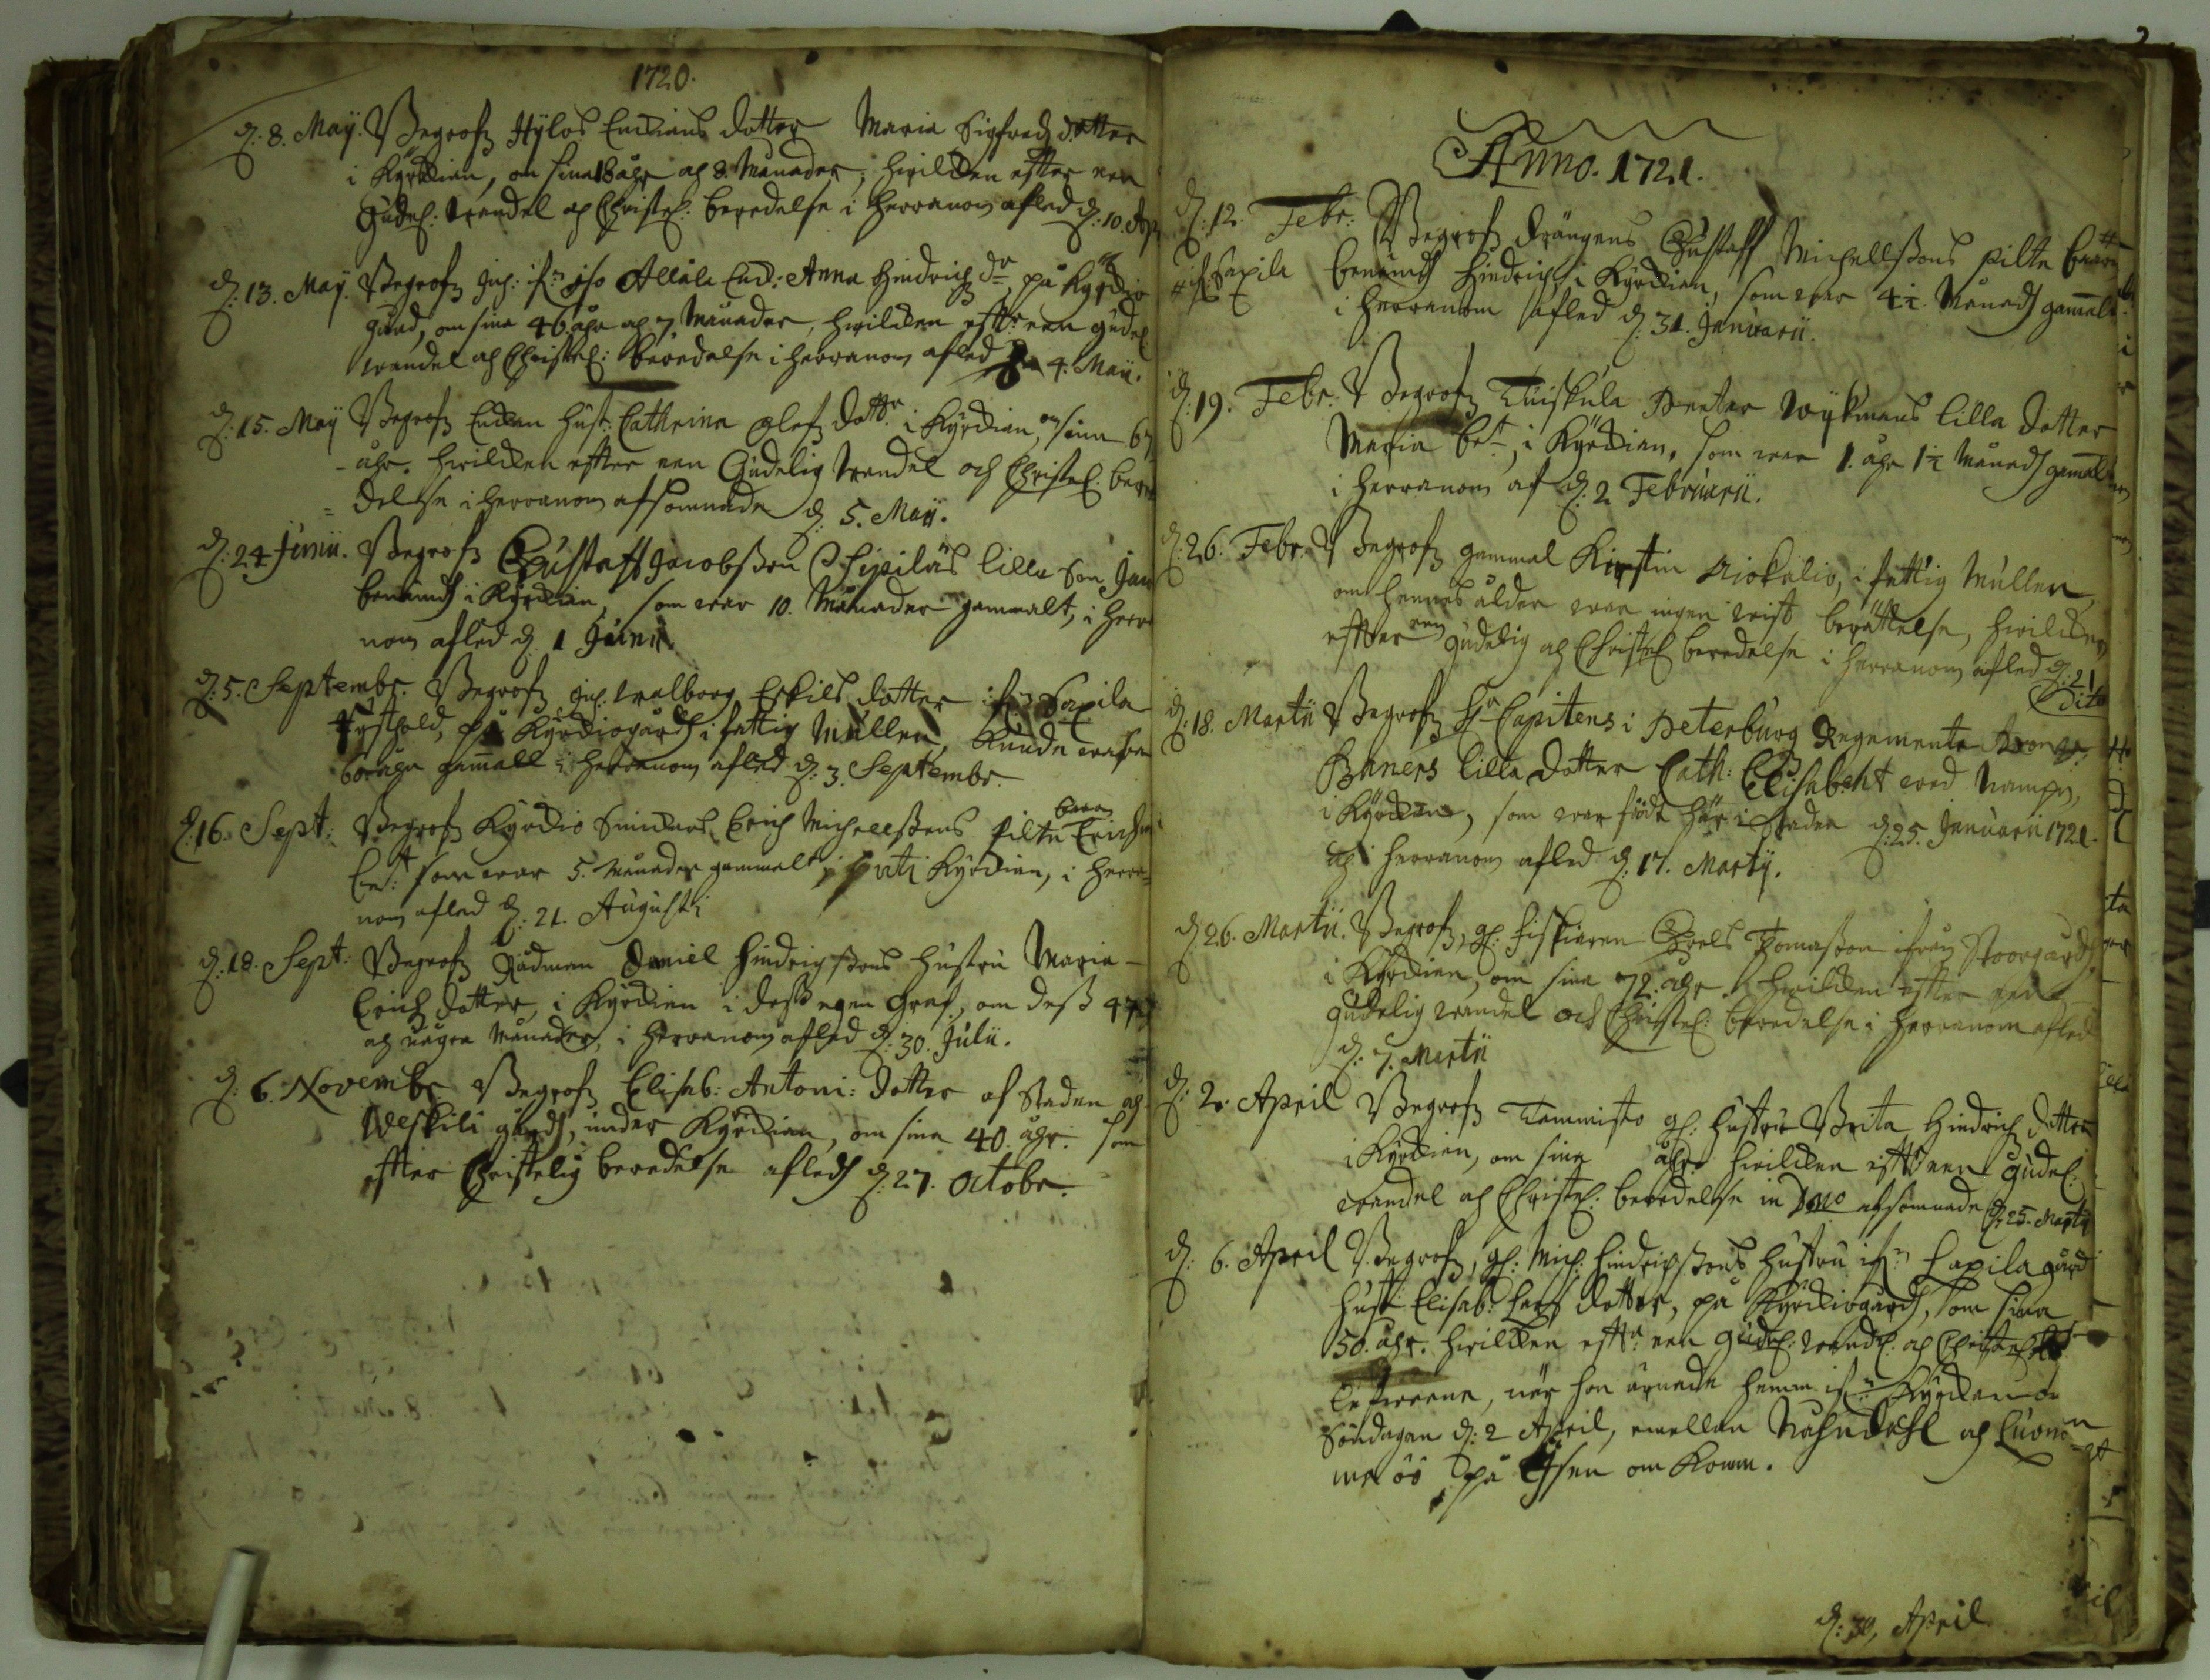 1720.
d: 8. Maÿ. Begrofz Hÿlos Enckians dotter Maria Sigfredz dotter
i Kÿrckian, om sina 18 åhr och 8. Månader, hwilcken effter een
Gudel: wandel och Christel: beredelse i Herranom afled d: 10. Ap
d: 13. Maÿ. Begrofz Anna Hindrichz dr, på Kÿrckio
gård, om sina 46. åhr och 7 Månader, hwilcken efftr een gudel
wandel och Christel: beredelse i Herranom afled 4. Maii.
d: 15. Maÿ Begrofz Enckan Hust: Cathrina Olofz dottr i Kÿrckian, om sina 67
åhr. hwilcken effter een Gudelig wandel och Christel: bere
delse i Herranom afsomnade d: 5. Maÿ.
d: 24 Junii. Begrofz Gustaff Jacobsson Sipiläs lilla Son
benämd i Kÿrckian, som war 10. Månader gammalt, i Herra
nom afled d. 1 Junii.
d: 5. Septembr. Begrofz walborg Eskils dotter ifrn Sapila
på Kÿrckiogård i fattig Mullen, kunde wara
60. åhr gammall i Herranom afled d: 3. Septembr.
d: 16. Sept: Begrofz Kÿrckio Erich Michellssons pilte barn Erich
be: som war 5. Månader gammalt, uti Kÿrckian, i Herra=
nom afled d: 21. Augusti
d: 18. Sept: Begrofz Rådman Daniel Hindrichssons Hustru Maria
Erichz dotter, i Kÿrckian i dess egen Graf, om dess 47
och några Månader, i Herranom afled d: 30. Julii.
d: 6. Novembr Begrofz Elisab: Antoni: dotter af Staden och
weskili gård, under Kÿrckian, om sina 40. åhr. som
effter Christelig beredelse afled d: 27. Octobr.
Anno. 1721.
d: 12. Febr: Begrofz drängens Gustaff Michellssons pilte barn
Sapila benämd Hindrich i Kÿrckian, som war 4½. Månad gammalt
i Herranom afled d: 31. Januarii.
d: 19. Febr: Begrofz Tuiskula Peeter Wÿkmans lilla dotter
Maria be:, i Kÿrckian, som war 1. åhr 1½ Månad gamal
i Herranom af d: 2 Februarii.
d: 26. Febr: Begrofz gammal Kirstin Aiokalio, i fattig Mullen,
om hennes ålder war ingen wist berättelse, hwilcken
effter een gudelig och Christel beredelse i Herranom afled d: 21
Dito
d: 18. Martii Begrofz Hr Capitens i Peterburg Regemente
Baners lilla dotter Cath: Elisabeht wed namn,
i Kÿrckian, som war född här i Staden d: 25. Januarii 1721.
och i Herranom afled d: 17. Martÿ.
d: 26. Martii. Begrofz, gl: fiskiaren Thomasson ifrån Storgård
i Kÿrckian, om sina 72. åhr. hwilcken effter een
gudelig wandel och Christel: beredelse i Herranom afled
d: 7. Martii
d: 2. April Begrofz Tammisto gl: Hustru Brita Hindrichz dotter
i Kÿrckian, om sina åhr: hwilcken efftr een Gudel:
wandel och Christel: beredelse in Dno afsomnade d: 25. Martii
d: 6. April Begrofz, gl: Mich: Hindrichssons Hustru ifrn Sapila gård
Hust: Elisab: Larsz dotter, på Kÿrckiogård, om sina
50. åhr. hwilcken efftr een gudel: wandel: och Christel
när hon ärnade hemm ifrn Kÿrckian om
Söndagen d: 2 April, emellan Nåhndahl och Luon
ma öö på Isen om komm.
d: 30, April